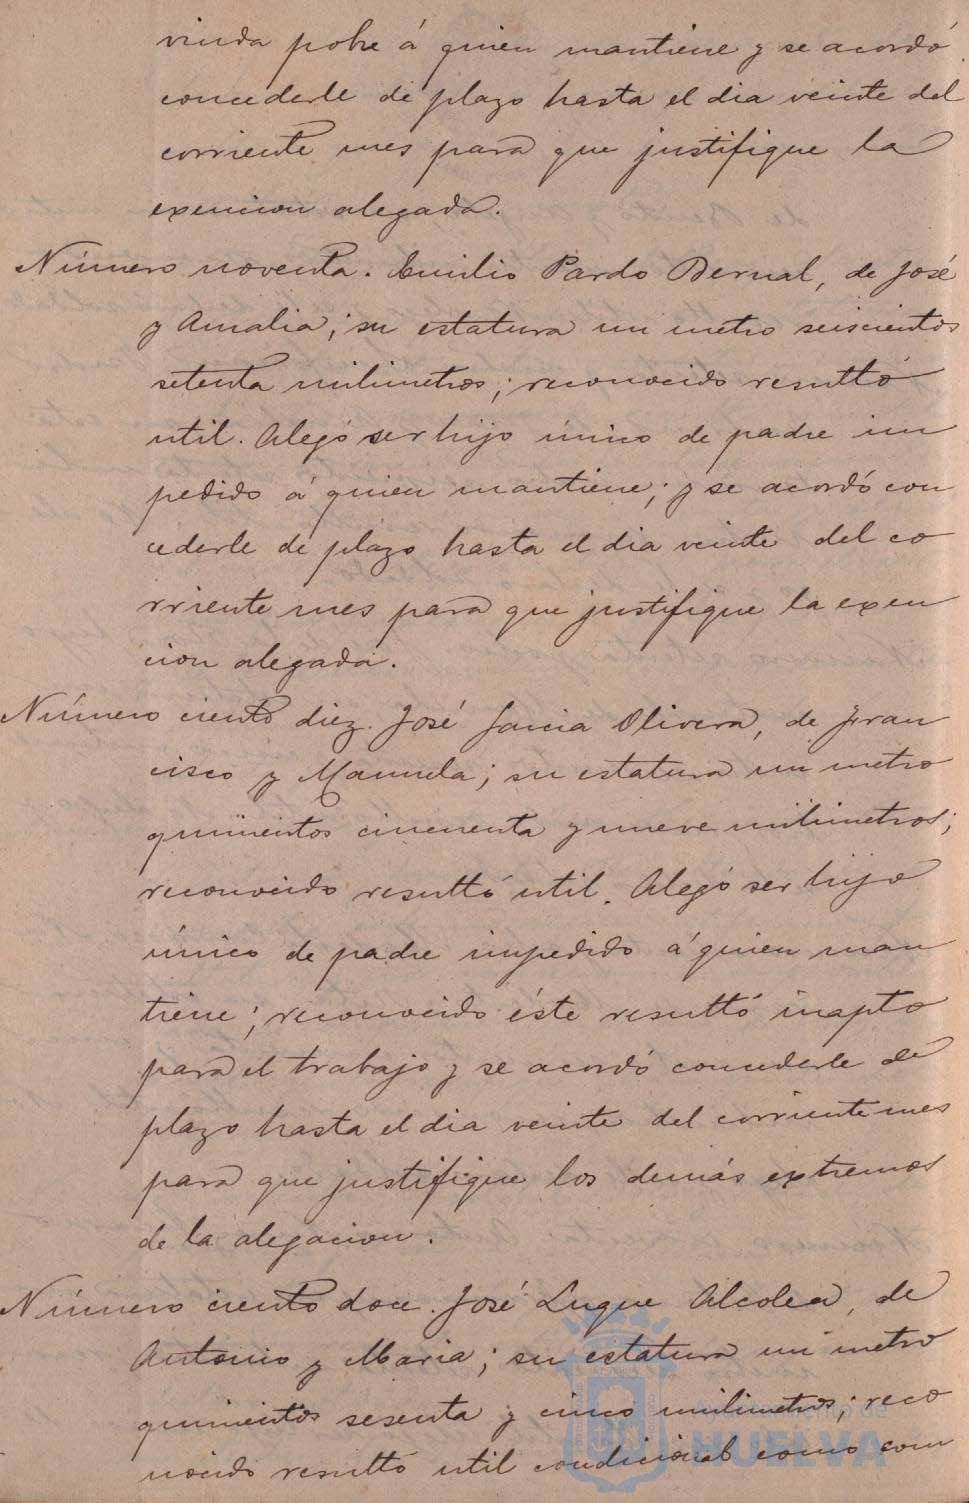 viuda pobre á quien mantiene y se acordó
concederle de plazo hasta el dia veinte del
corriente mes para que justifique la
exencion alegada.
Número noventa. Emilio Pardo Bernal, de José
y Amalia; su estatura un metro seiscientos
setenta milimetros; reconocido resultó
util. Alegó ser hijo único de padre im
pedido á quien mantiene; y se acordó con
cederle de plazo hasta el dia veinte del co
rriente mes para que justifique la exen
cion alegada.
Número ciento diez. José Garcia Olivera, de Fran
cisco y Manuela; su estatura un metro
quinientos cincuenta y nueve milimetros;
reconocido resultó util. Alegó ser hijo
único de padre impedido á quien man
tiene; reconocido éste resultó inapto
para el trabajo y se acordó concederle de
plazo hasta el dia veinte del corriente mes
para que justifique los demás extremos
de la alegacion.
Número ciento doce. José Luque Alcolea, de
Antonio y Maria; su estatura un metro
quinientos sesenta y cinco milimetros; reco
nocido resultó util condicional como com
HUELVA